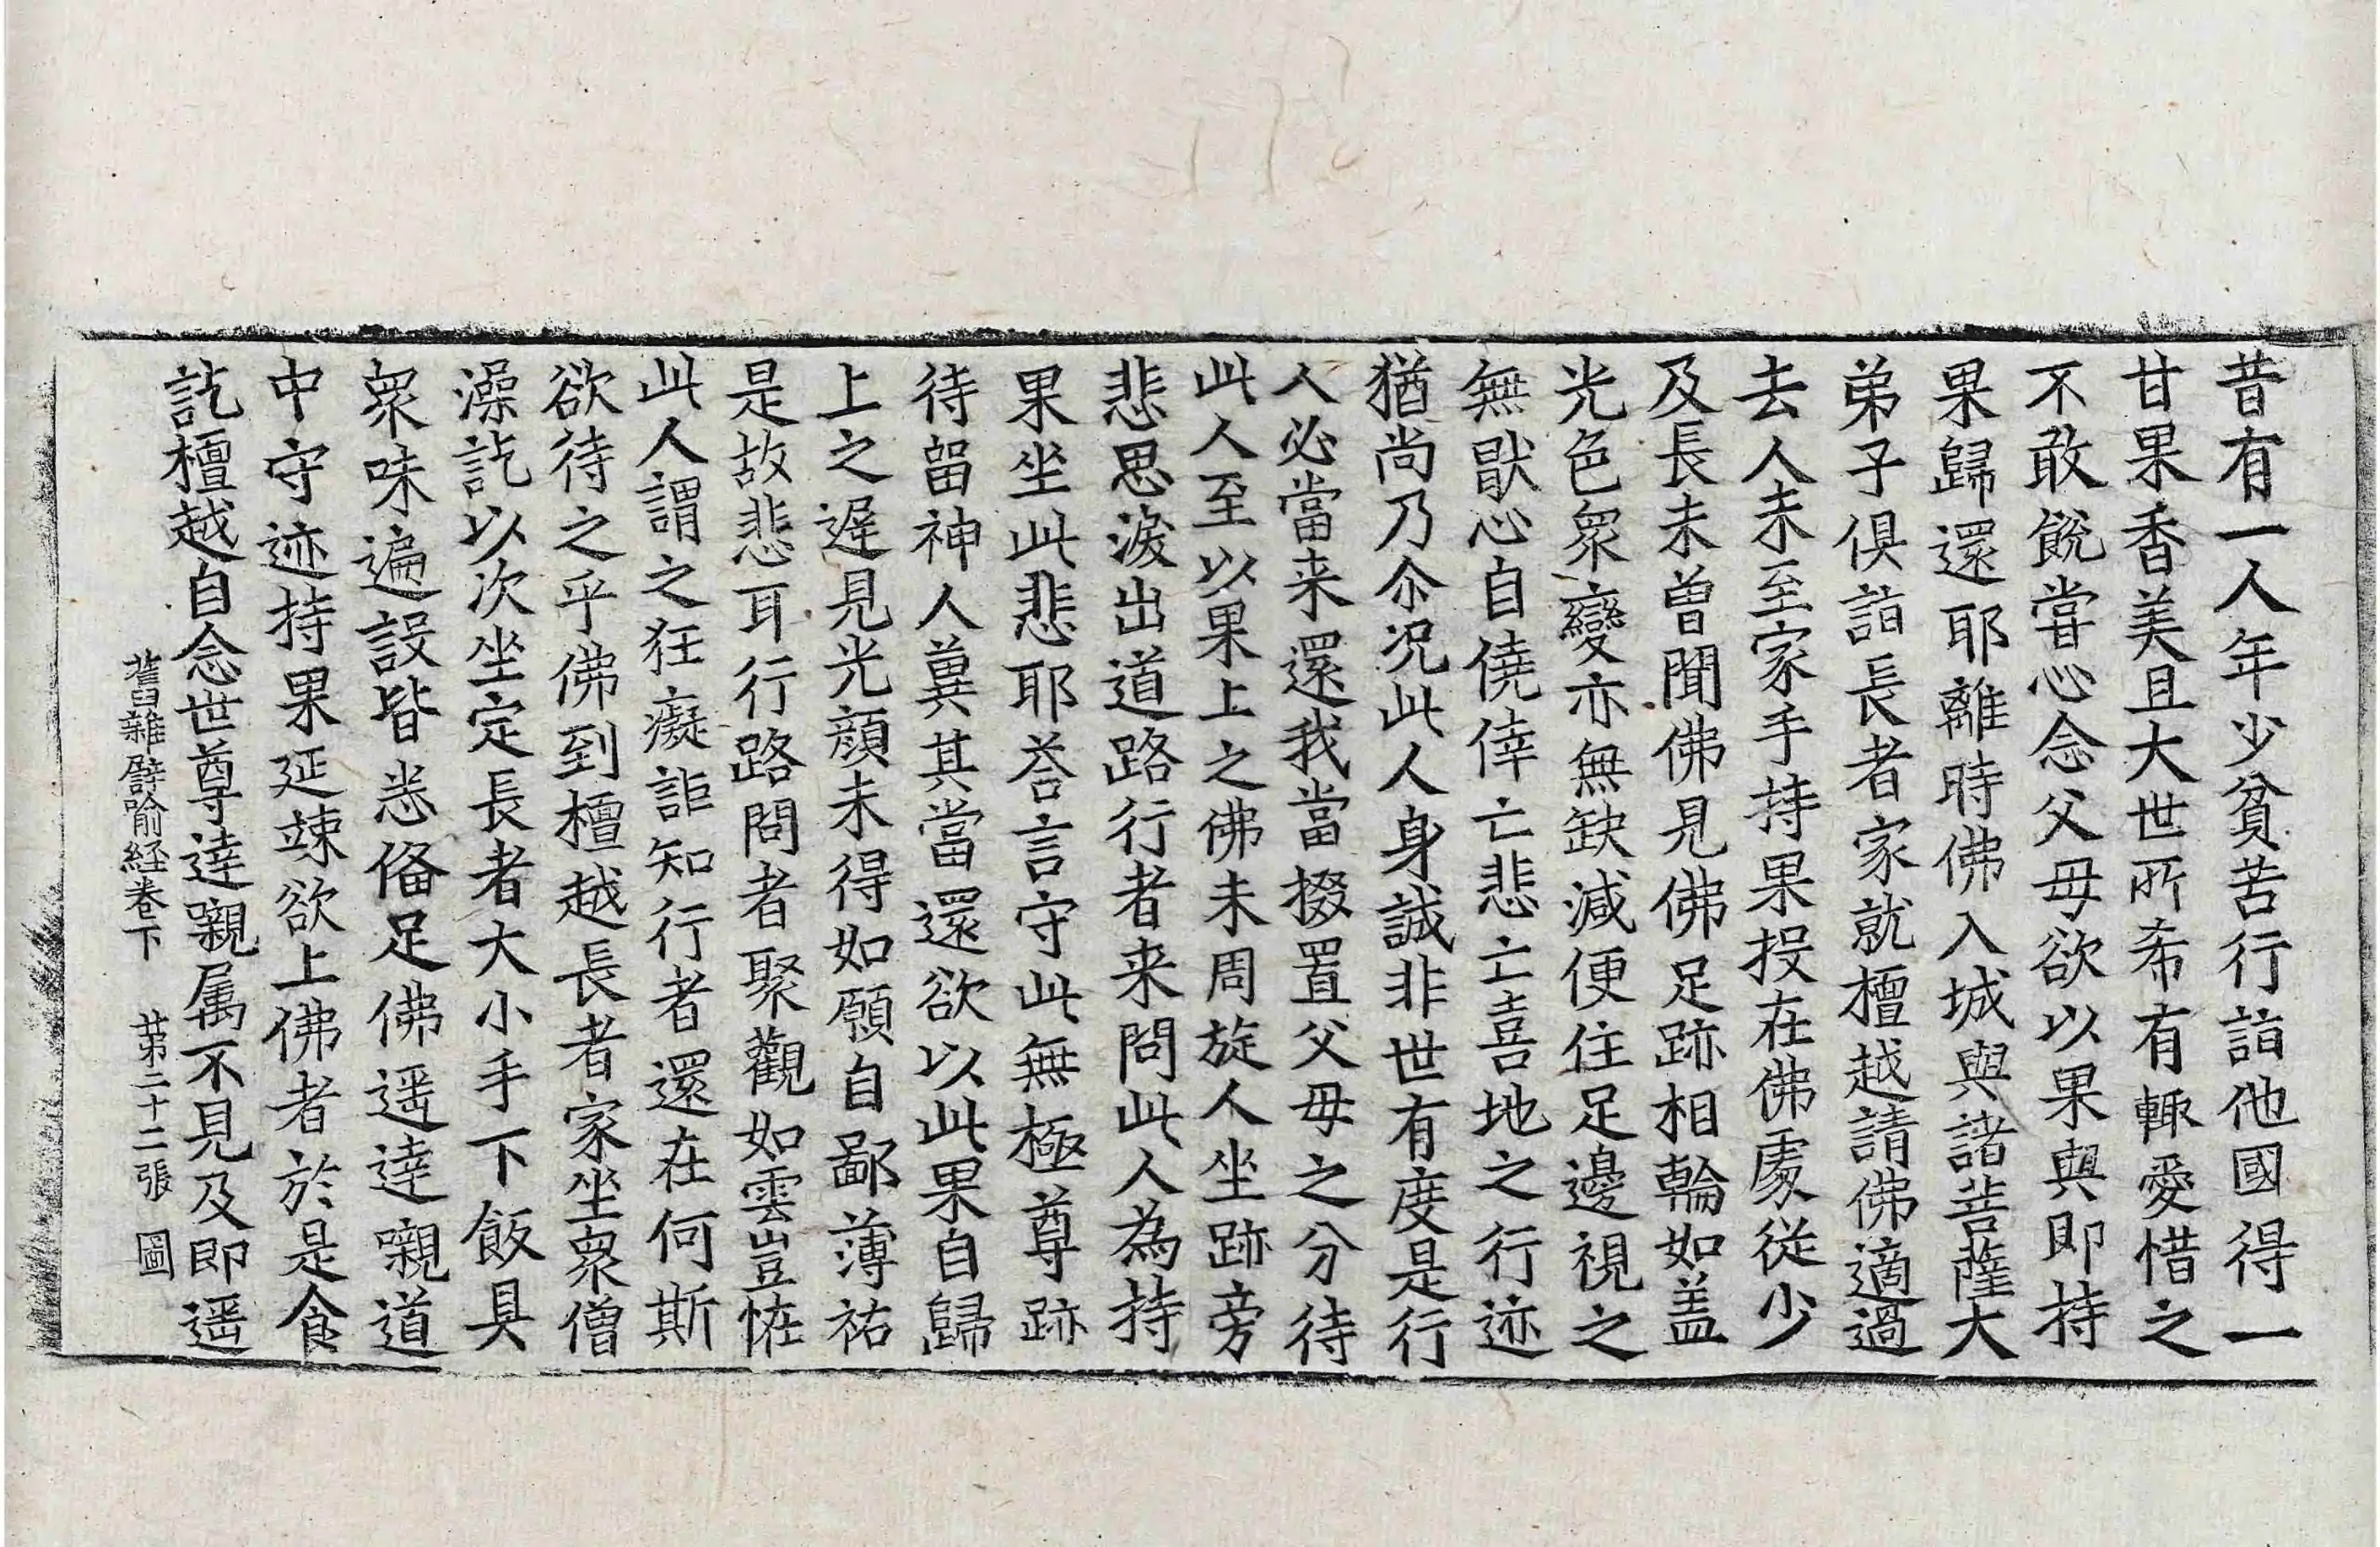 昔有一人年少貧苦行詣他國得一
甘果香美且大世所希有輙愛惜之
不敢飮嘗心念父母欲以果與即持
果歸還耶離時佛入城與諸菩薩大
弟子俱詣長者家就檀越請佛適過
去人未至家手持果投在佛處從少
及長未曾聞佛見佛足跡相輪如盖
光色衆變亦無缺減便住足邊視之
無猒心自僥倖亡悲亡喜地之行迹
猶尚乃尒况此人身誠非世有度是行
人必當来還我當掇置父母之分待
此人至以果上之佛未周旋人坐跡旁
悲思淚出道路行者来問此人為持
果坐此悲耶荅言守此無極尊跡
待留神人冀其當還欲以此果自歸
上之遅見光顔未得如願自鄙薄祐
是故悲耳行路問者聚觀如雲豈恠
此人謂之狂癡詎知行者還在何斯
欲待之乎佛到檀越長者家坐衆僧
澡訖以次坐定長者大小手下飯具
衆味遍設皆悉俻足佛遥達嚫道
中守迹持果延竦欲上佛者於是食
訖檀越自念世尊達嚫属不見及即遥
舊雜譬喻経卷下 苐二十二張 圖